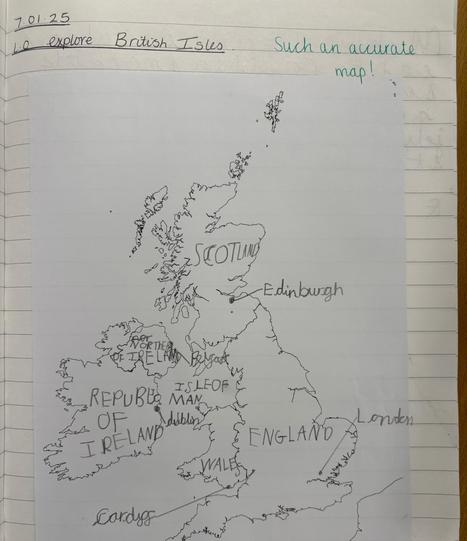 7.01.25
L.O explore British Isles
Such an accurate
map!
SCOTLAND
Edinburgh
NORTHE
OF IRELAND
Belfast
ISLE OF
MAN
REPUBLIC
OF
IRELAND
dublin
London
ENGLAND
WALES
Cardyff